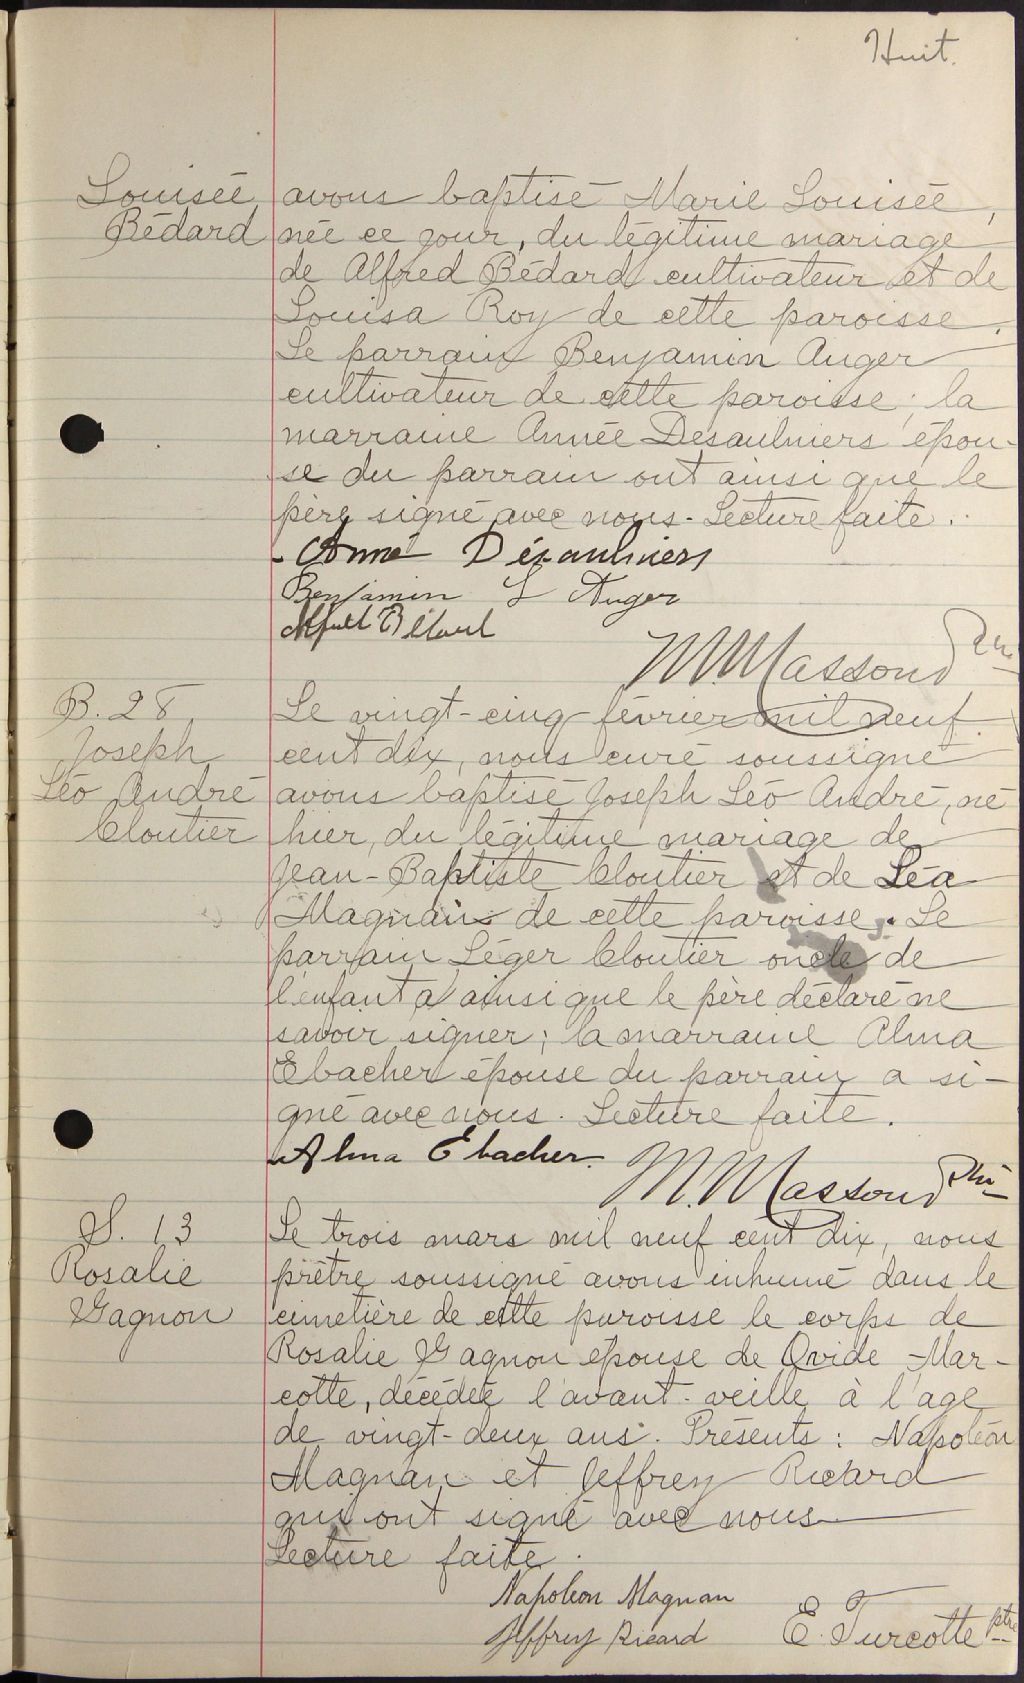 Huit.
Louisée avous baptisé Marie Louisée,
Bédard née ce jour, du légitime mariage
de Alfred Bédard cultivateur et de
Louisa Roy de cette paroisse.
Le parrain Benjamin Auger
cultivateur de cette paroisse; la
marraine Année Desaulniers épou-
se du parrain ont ainsi que le
père signé avec nous. Lecture faite.
Anné Désaulniers
Benjamin L Auger
Alfred Bédard
M. Massoud
B. 28 Le vingt-cinq février mil neuf
Joseph cent dix, nous curé soussigné
Léo André avons baptisé Joseph Léo André, né
Cloutier hier, du légitime mariage de
Jean-Baptiste Cloutier et de Léa
Magnan de cette paroisse. Le
parrain Léger Cloutier oncle de
l'enfant a ainsi que le père déclaré ne
savoir signer; la marraine Alma
Ebacher épouse du parrain a si-
gné avec nous. Lecture faite.
Alma Ebacher.
M. Massoud
S. 13 Le trois mars mil neuf cent dix, nous
Rosalie prêtre soussigné avons inhumé dans le
Gagnon cimetière de cette paroisse le corps de
Rosalie Gagnon épouse de Ovide Mar-
cotte, décédée l'avant-veille à l'age
de vingt-deux ans. Présents: Napoléon
Magnan et Jeffrey Ricard
qui ont signé avec nous
Lecture faite.
Napoléon Magnan
Jeffrey Ricard E. Turcotte ptre